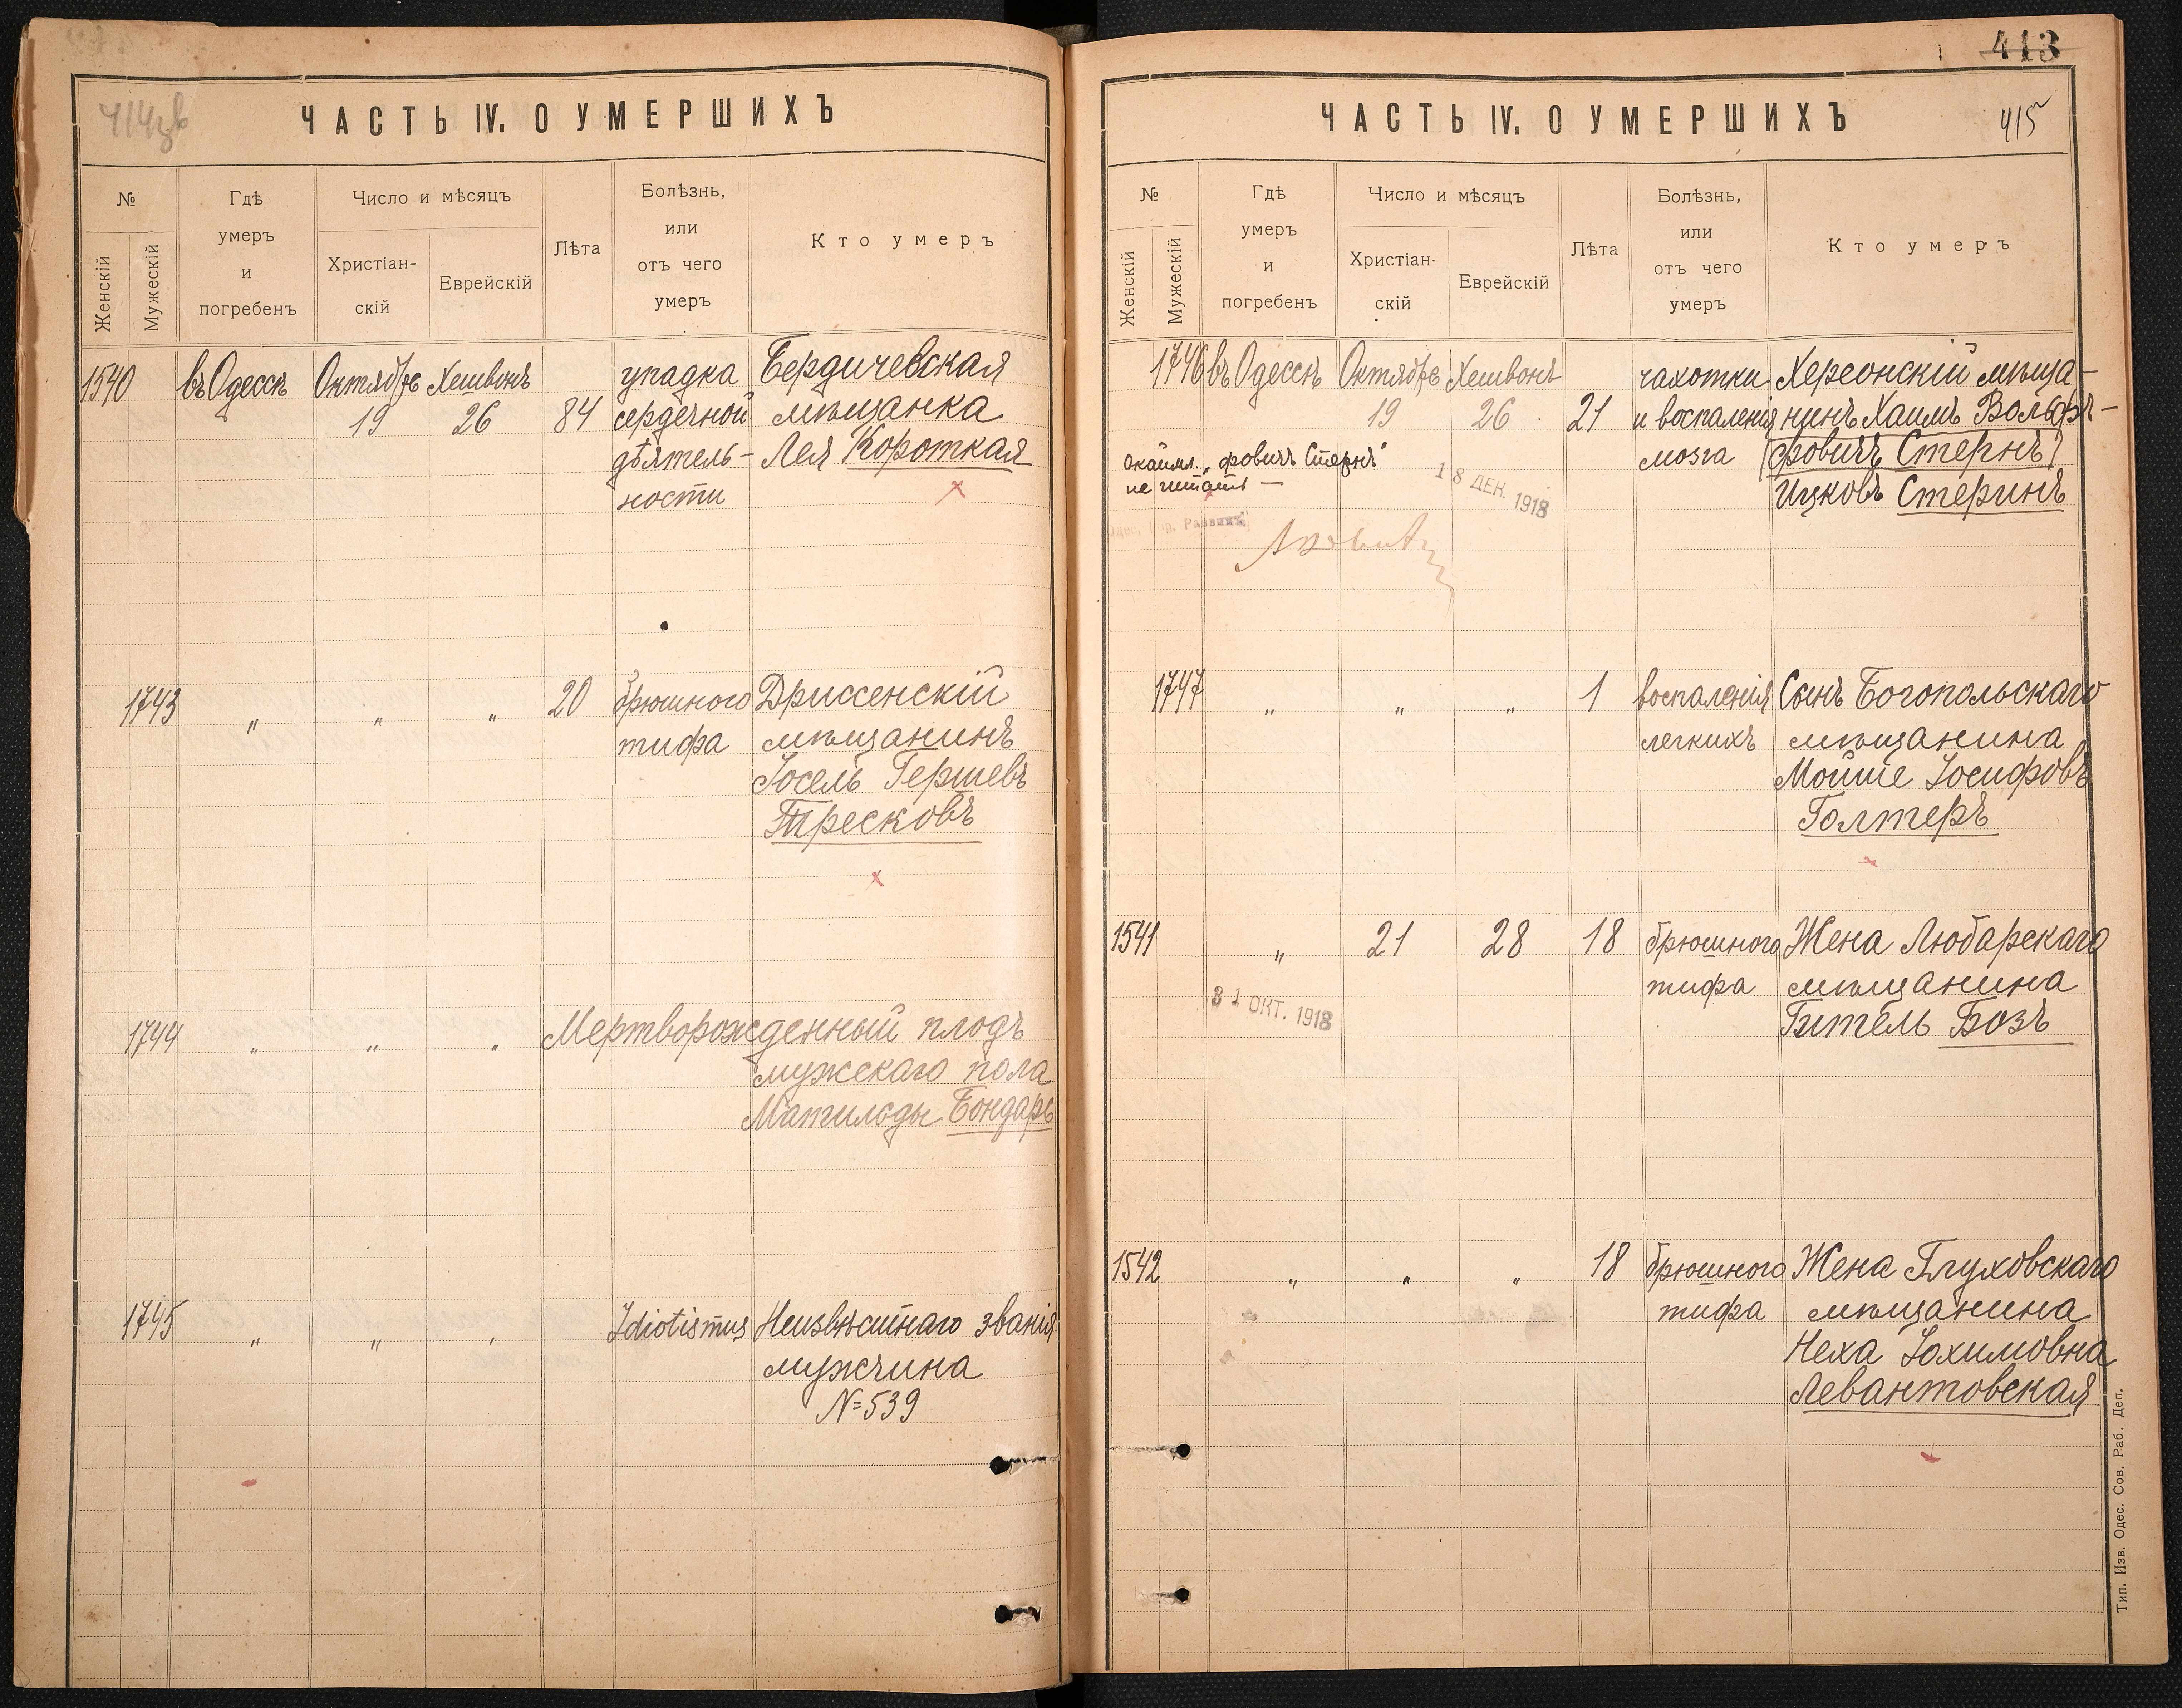 414 зв
ЧАСТЬ IV. О УМЕРШИХЪ
№
Женскій
Мужескій
Гдѣ
умеръ
и
погребенъ
Число и мѣсяцъ
Христіан-
скій
Еврейскій
Лѣта
Болѣзнь,
или
отъ чего
умеръ
Кто умеръ
1540 въ Одессѣ Октября Хешвонъ упадка Бердичевская
19 26 84 сердечной мѣщанка
дѣятель- Лея Короткая
ности
1743 " " " 20 брюшного Дриссенскій
тифа мѣщанинъ
Іосель Гершевъ
Тресковъ
1744 " " " Мертворожденный плодъ
мужскаго пола
Матильды Бондарь
1745 " " " Idiotismus Неизвѣстнаго званія
мужчина
№539
413
ЧАСТЬ IV. О УМЕРШИХЪ
415
№
Женскій
Мужескій
Гдѣ
умеръ
и
погребенъ
Число и мѣсяцъ
Христіан-
скій
Еврейскій
Лѣта
Болѣзнь,
или
отъ чего
умеръ
Кто умеръ
1746 въ Одессѣ Октября Хешвонъ чахотки Херсонскій мѣща-
19 26 21 и воспаленія нинъ Хаимъ Вольфъ-
мозга (фовичъ Стернъ)
Ицковъ Стеринъ
Окаймл. "фовичъ Стернъ"
не читать —
18 ДЕК. 1918
Одес. Гор. Раввинъ
1747 " " " 1 воспаленія Сынъ Богопольскаго
легкихъ мѣщанина
Мойше Іосифовъ
Голтеръ
1541 " 21 28 18 брюшного Жена Любарскаго
тифа мѣщанина
Гитель Бозъ
31 ОКТ. 1918
1542 " " " 18 брюшного Жена Глуховскаго
тифа мѣщанина
Неха Іохимовна
Левантовская
Тип. Изв. Одес. Сов. Раб. Деп.